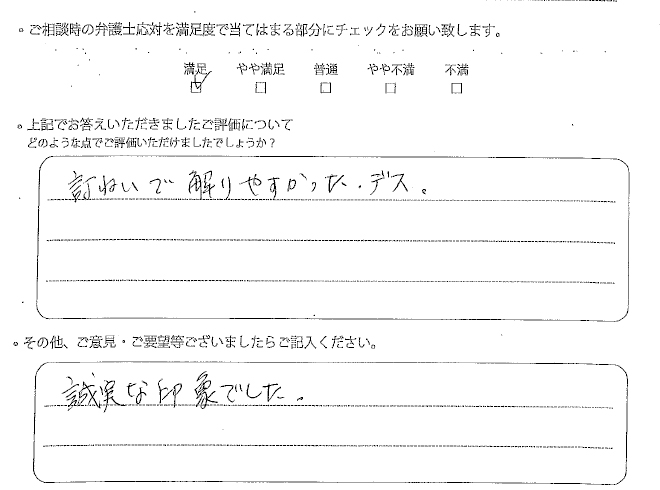 。ご相談時の弁護士応対を満足度で当てはまる部分にチェックをお願い致します。
満足 やや満足 普通 やや不満 不満
☑ □ □ □ □
。上記でお答えいただきましたご評価について
どのような点でご評価いただけましたでしょうか？
訂ねいで解りやすかった.デス。
。その他、ご意見・ご要望等ございましたらご記入ください。
誠実な印象でした。